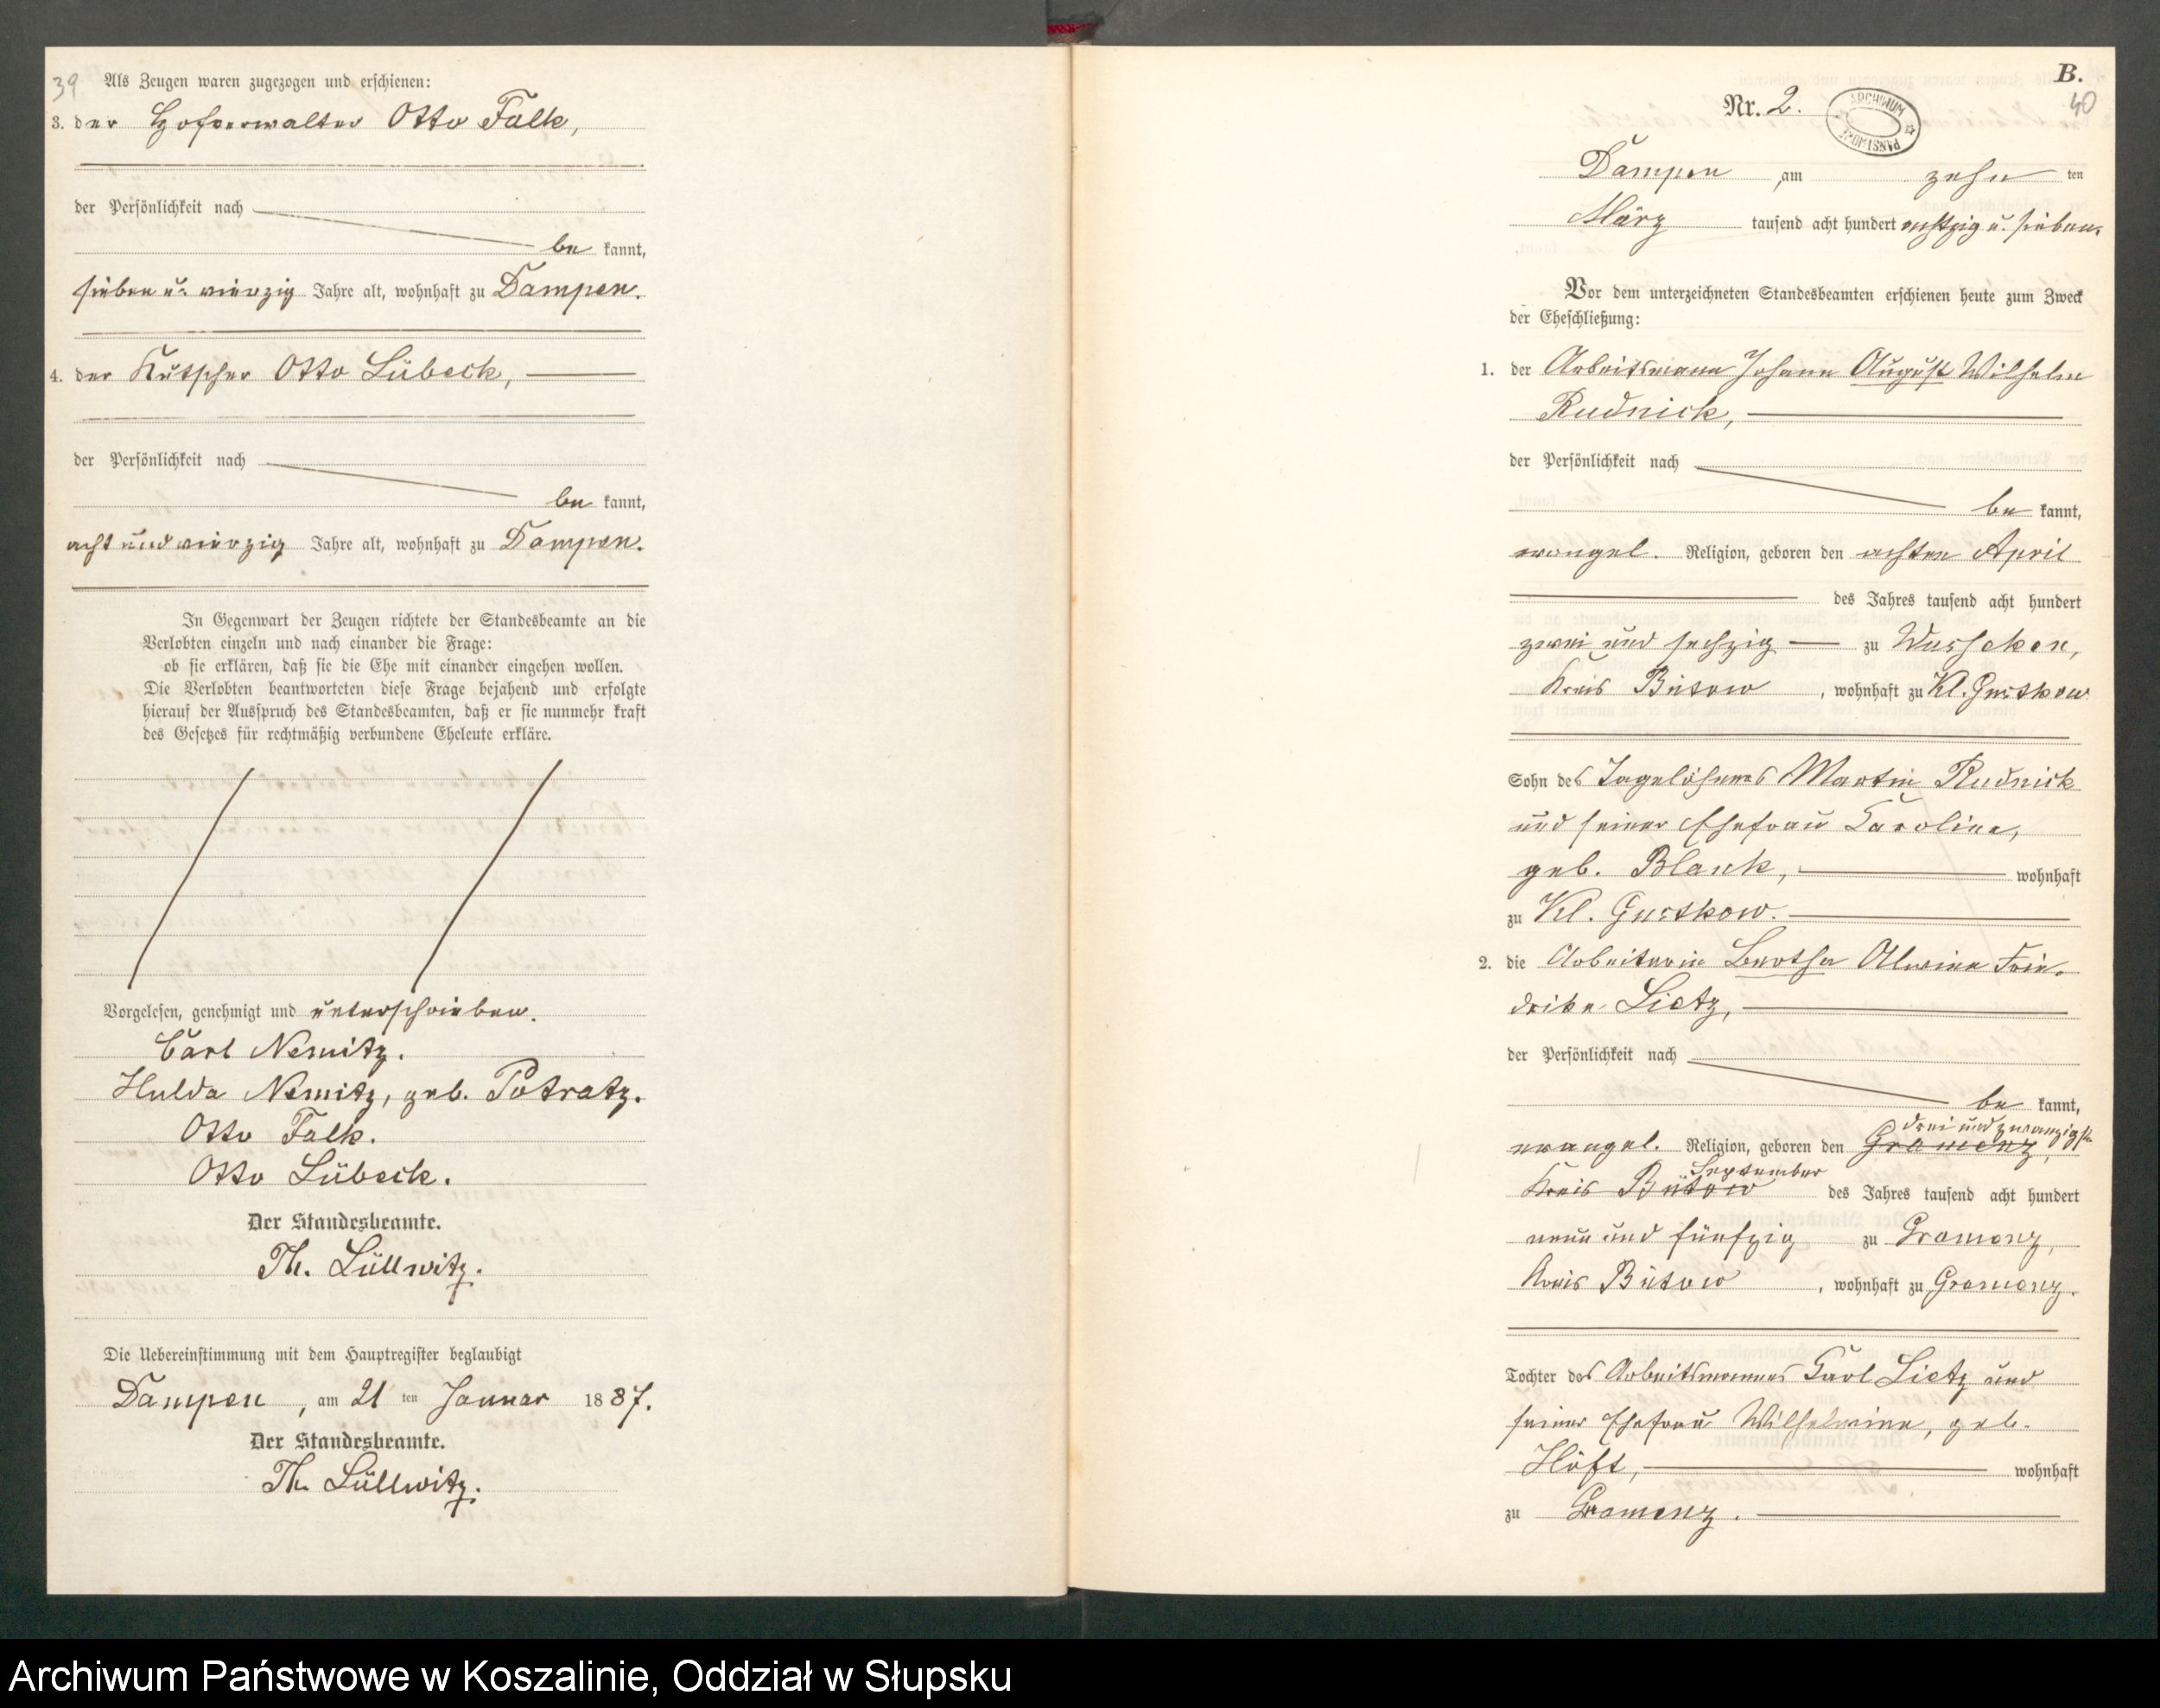 39
Als Zeugen waren zugezogen und erschienen:
3. der Hofverwalter Otto Falk,
der Persönlichkeit nach
be kannt,
sieben u. vierzig Jahre alt, wohnhaft zu Dampen.
4. der Kutscher Otto Lübeck,
der Persönlichkeit nach
be kannt,
acht und vierzig Jahre alt, wohnhaft zu Dampen.
In Gegenwart der Zeugen richtete der Standesbeamte an die
Verlobten einzeln und nach einander die Frage:
ob sie erklären, daß sie die Ehe mit einander eingehen wollen.
Die Verlobten beantworteten diese Frage bejahend und erfolgte
hierauf der Ausspruch des Standesbeamten, daß er sie nunmehr kraft
des Gesetzes für rechtmäßig verbundene Eheleute erkläre.
Vorgelesen, genehmigt und unterschrieben.
Carl Nemitz.
Hulda Nemitz, geb. Potratz.
Otto Falk.
Otto Lübeck.
Der Standesbeamte.
Th. Lüllwitz.
Die Uebereinstimmung mit dem Hauptregister beglaubigt
Dampen, am 21 ten Januar 1887.
Der Standesbeamte.
Th. Lüllwitz.
B.
40
Nr. 2.
ARCHIWUM PAŃSTWOWE
Dampen, am zehn ten
März tausend acht hundert achtzig u. sieben.
Vor dem unterzeichneten Standesbeamten erschienen heute zum Zweck
der Eheschließung:
1. der Arbeitsmann Johann August Wilhelm
Rudnick,
der Persönlichkeit nach
be kannt,
evangel. Religion, geboren den achten April
des Jahres tausend acht hundert
zwei und sechzig zu Wusseken,
Kreis Bütow, wohnhaft zu Kl. Gustkow
Sohn des Tagelöhners Martin Rudnick
und seiner Ehefrau Caroline,
geb. Blank, wohnhaft
zu Kl. Gustkow.
2. die Arbeiterin Bertha Alwine Frie-
drike Lietz,
der Persönlichkeit nach
be kannt,
drei und zwanzigsten
evangel. Religion, geboren den Gramenz,
September
Kreis Bütow des Jahres tausend acht hundert
neun und fünfzig zu Gramenz,
Kreis Bütow, wohnhaft zu Gramenz.
Tochter des Arbeitsmannes Carl Lietz und
seiner Ehefrau Wilhelmine, geb.
Höft, wohnhaft
zu Gramenz.
Archiwum Państwowe w Koszalinie, Oddział w Słupsku